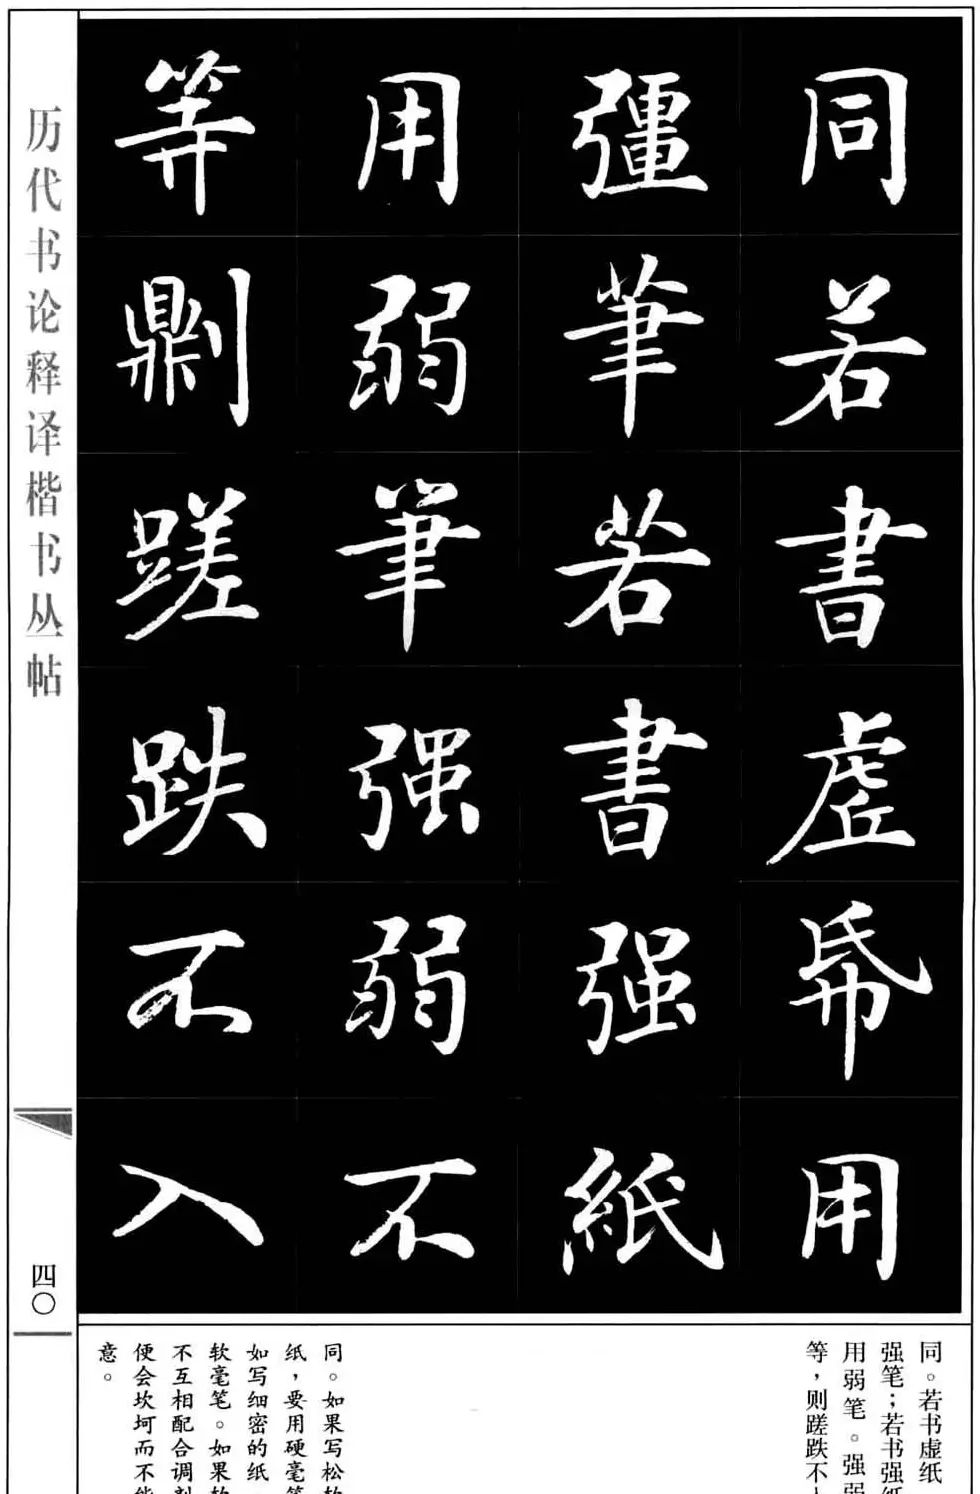 同若書虛帋用
彊筆若書强紙
用弱筆强弱不
等則蹉跌不入
历代书论释译楷书丛帖
四〇
同。若书虚纸
强笔；若书强纸
用弱笔。强弱
等，则蹉跌不
同。如果写松软
纸，要用硬毫笔
如写细密的纸
软毫笔。如果软
不互相配合调剂
便会坎坷而不能
意。